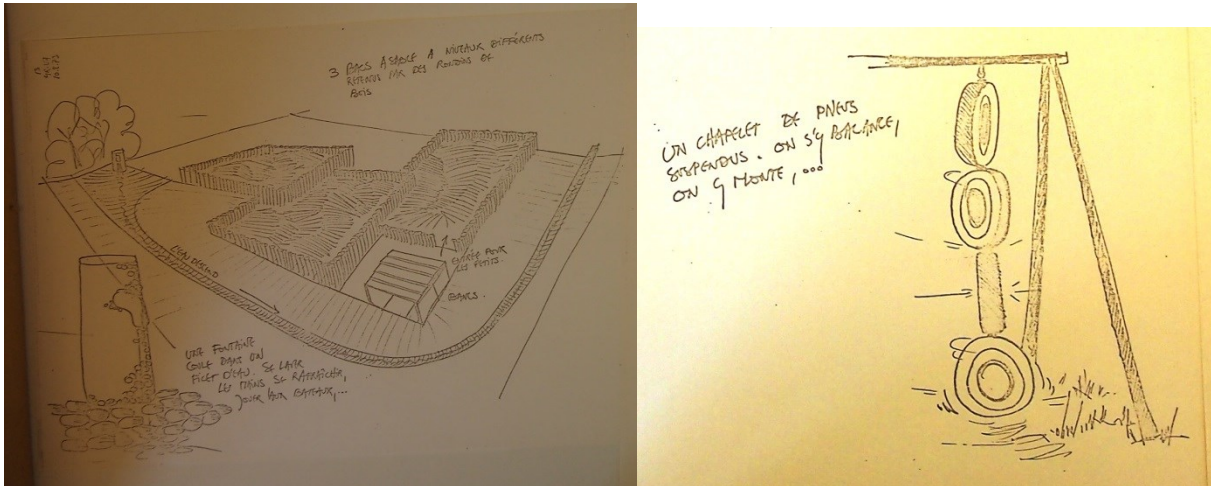 3 BACS A SABLE A NIVEAUX DIFFÉRENTS
RETENUS PAR DES RONDINS DE
BOIS
L'EAU DESCEND
ENTRÉE POUR
LES PETITS.
BANCS.
UNE FONTAINE
COULE DANS UN
FILET D'EAU. SE LAVER
LES MAINS SE RAFRAÎCHIR,
JOUER AUX BATEAUX,...
UN CHAPELET DE PNEUS
SUSPENDUS. ON S'Y BALANCE,
ON Y MONTE,...